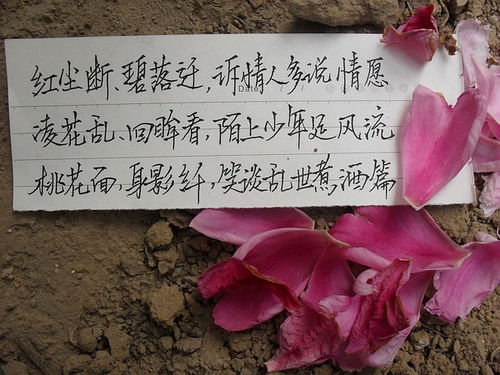 红尘断、碧落迁，诉情人多说情愿
凌花乱、回眸看，陌上少年足风流
桃花面，身影纤，笑谈乱世煮酒篇
Date